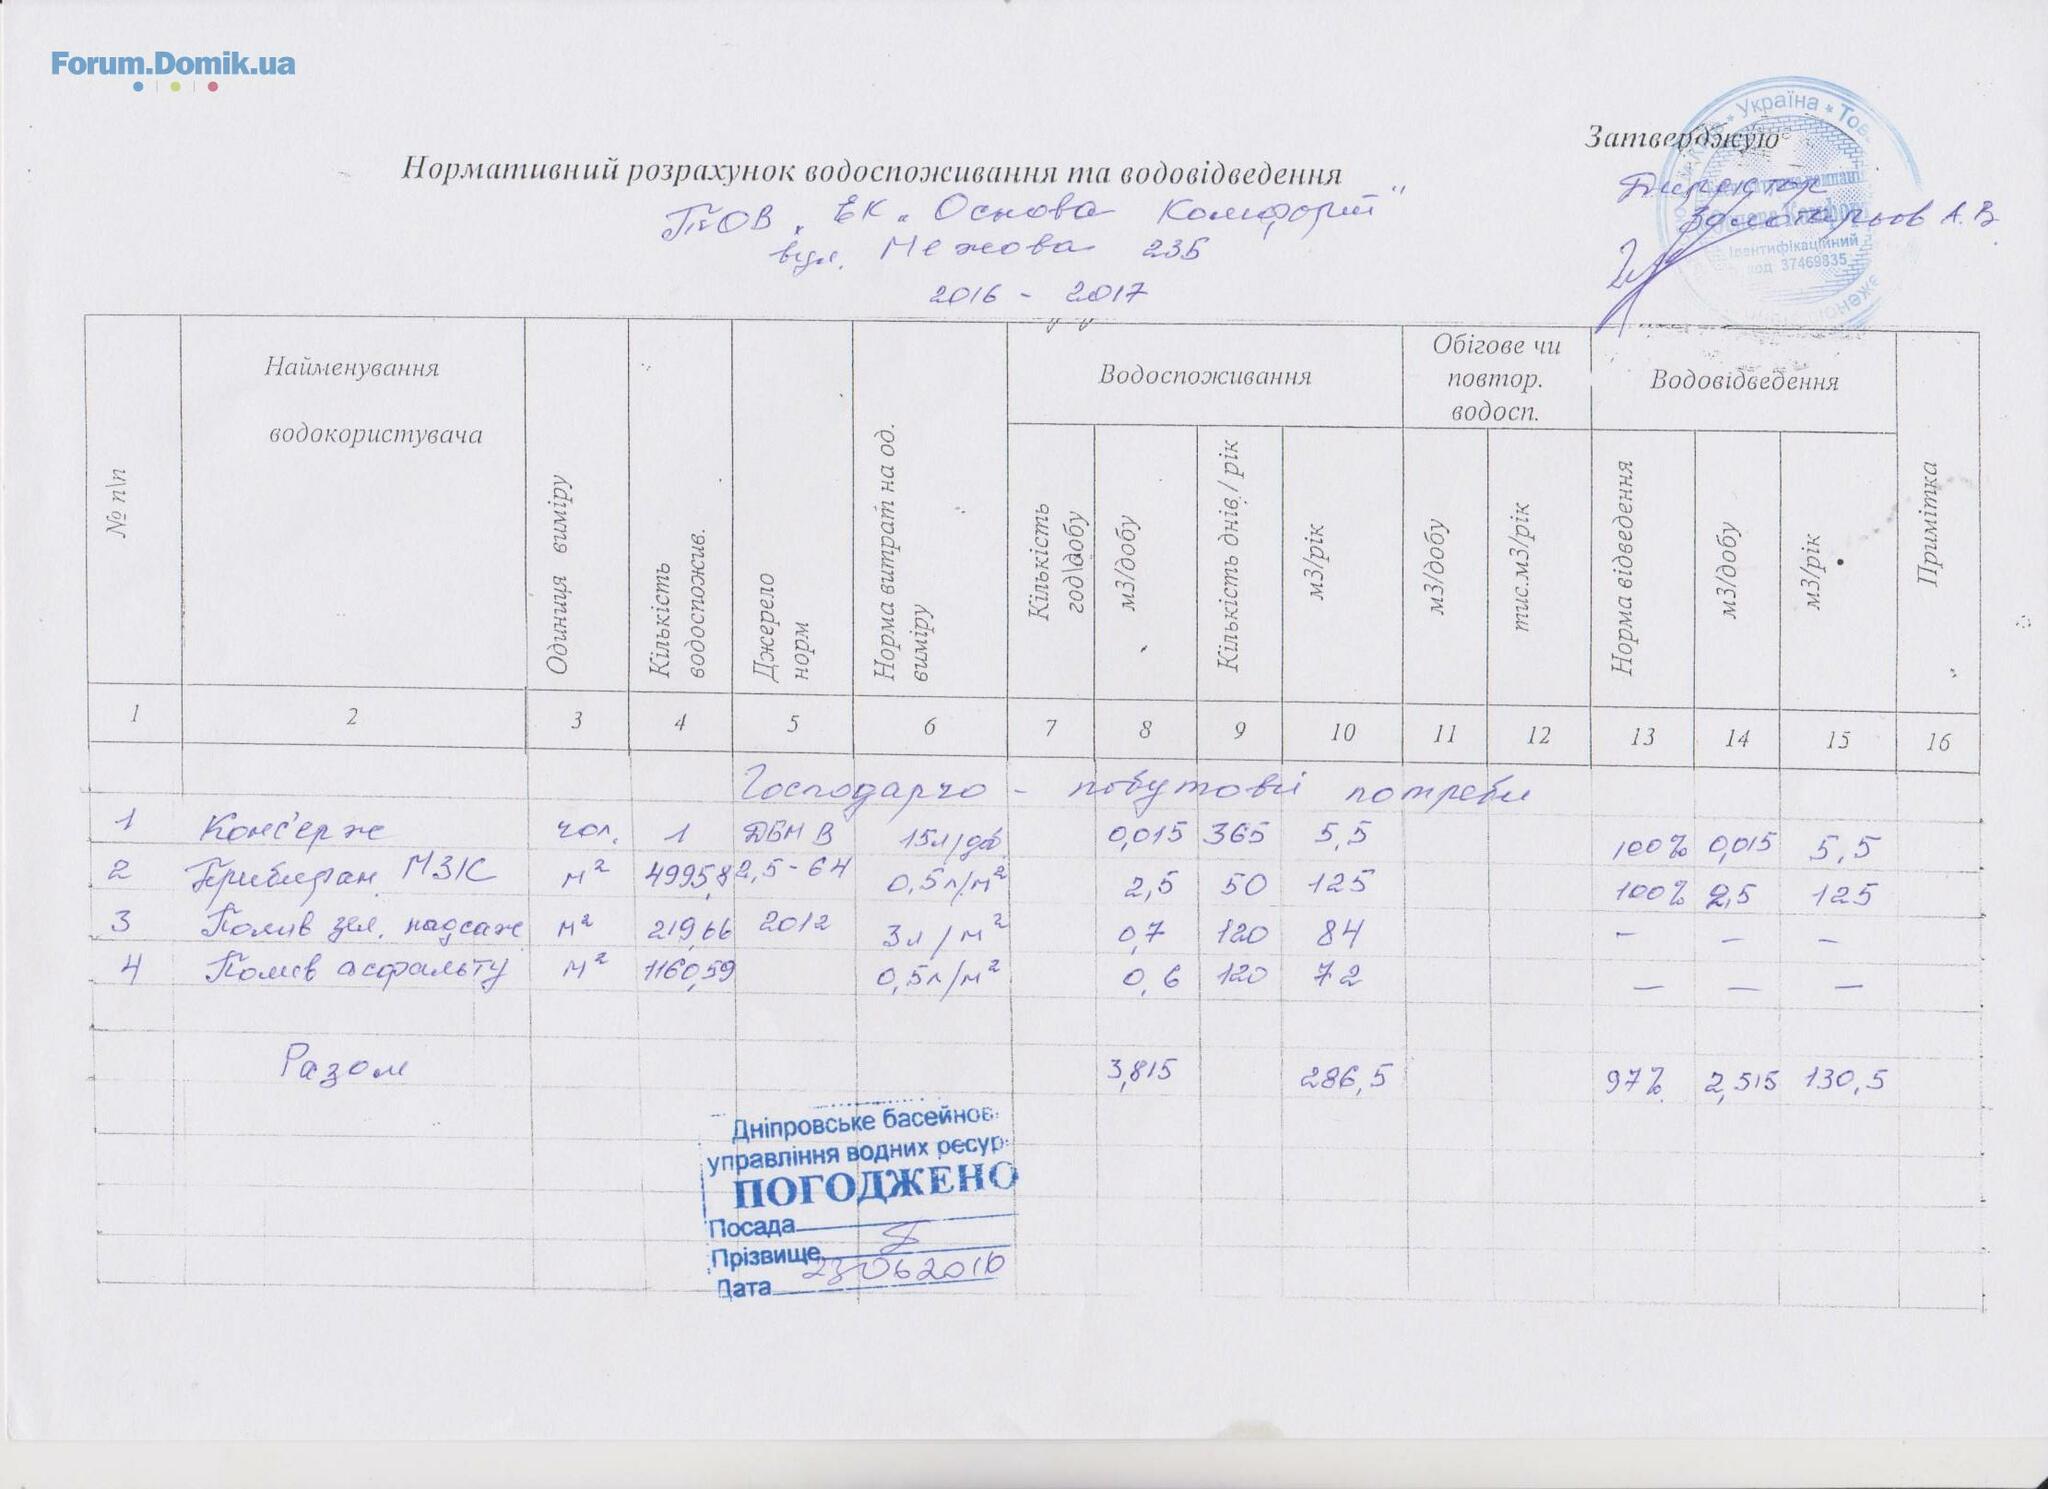 Forum.Domik.ua
Затверджую
Україна * Тов
Нормативний розрахунок водоспоживання та водовідведення
Директор
ТзОВ „ЕК „Основа Комфорт"
А.В.
вул. Межова 23Б
Ідентифікаційний
код 37469835
2016 - 2017
№ п\п
Найменування водокористувача
Одиниця виміру
Кількість водоспожив.
Джерело норм
Норма витрат на од. виміру
Водоспоживання
Обігове чи повтор. водосп.
Водовідведення
Примітка
Кількість год\добу
м3/добу
Кількість днів / рік
м3/рік
м3/добу
тис.м3/рік
Норма відведення
м3/добу
м3/рік
1 2 3 4 5 6 7 8 9 10 11 12 13 14 15 16
Господарчо - побутові потреби
1 Конс'єрж чол. 1 ДБН В 15л/доб. 0,015 365 5,5 100% 0,015 5,5
2 Прибиран. МЗК м² 4995,8 2,5-64 0,5л/м² 2,5 50 125 100% 2,5 125
3 Полив зел. насадж м² 219,66 2012 3л/м² 0,7 120 84 - - -
4 Полив асфальту м² 1160,59 0,5л/м² 0,6 120 72 - - -
Разом 3,815 286,5 97% 2,515 130,5
Дніпровське басейнов
управління водних ресур
ПОГОДЖЕНО
Посада
Прізвище
Дата 23 06 2016